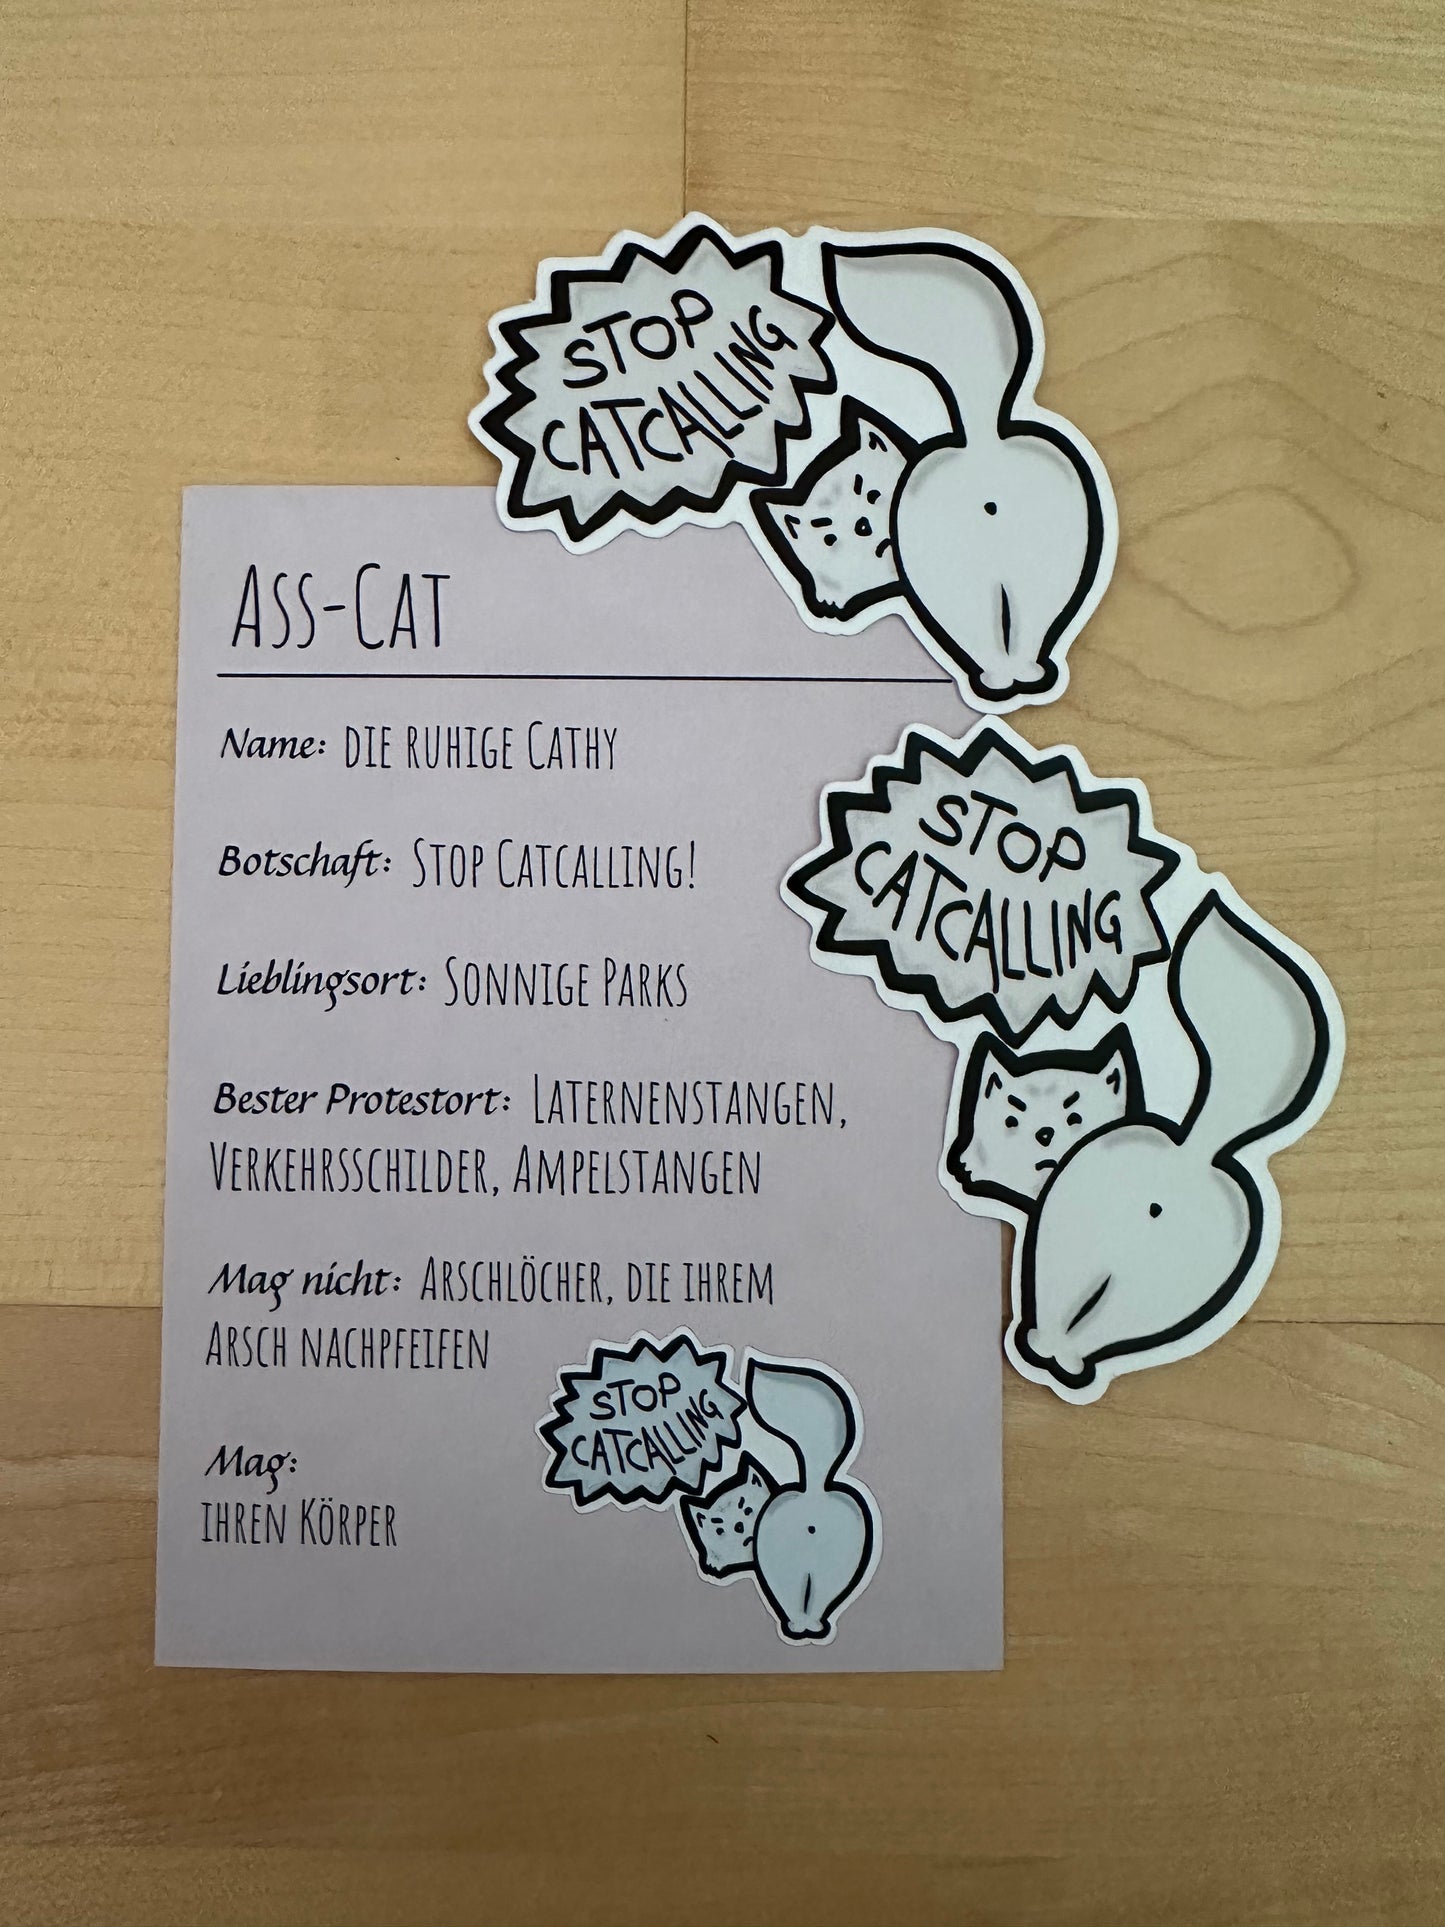 STOP
CATCALLING
ASS-CAT
Name: DIE RUHIGE CATHY
Botschaft: STOP CATCALLING!
Lieblingsort: SONNIGE PARKS
Bester Protestort: LATERNENSTANGEN,
VERKEHRSSCHILDER, AMPELSTANGEN
Mag nicht: ARSCHLÖCHER, DIE IHREM
ARSCH NACHPFEIFEN
Mag:
IHREN KÖRPER
STOP
CATCALLING
STOP
CATCALLING